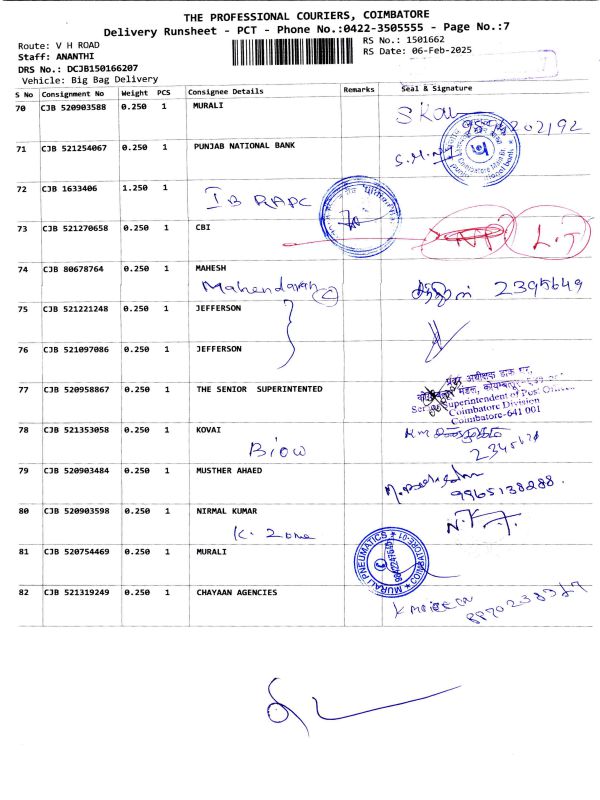 THE PROFESSIONAL COURIERS, COIMBATORE
Delivery Runsheet - PCT - Phone No.:0422-3505555 - Page No.:7
Route: V H ROAD
RS No.: 1501662
Staff: ANANTHI
RS Date: 06-Feb-2025
DRS No.: DCJB150166207
Vehicle: Big Bag Delivery
S No Consignment No Weight PCS Consignee Details Remarks Seal & Signature
70 CJB 520903588 0.250 1 MURALI
71 CJB 521254067 0.250 1 PUNJAB NATIONAL BANK
72 CJB 1633406 1.250 1
IB RAPC
73 CJB 521270658 0.250 1 CBI
L.T
74 CJB 80678764 0.250 1 MAHESH
Mahendaran C 2395649
75 CJB 521221248 0.250 1 JEFFERSON
76 CJB 521097086 0.250 1 JEFFERSON
77 CJB 520958867 0.250 1 THE SENIOR SUPERINTENTED
प्रवर अधीक्षक डाक घर,
Superintendent of Post Offices
Coimbatore Division
Coimbatore-641 001
78 CJB 521353058 0.250 1 KOVAI
79 CJB 520903484 0.250 1 MUSTHER AHAED
9965138288.
80 CJB 520903598 0.250 1 NIRMAL KUMAR
K. Zone
81 CJB 520754469 0.250 1 MURALI
MURALI PNEUMATICS * COIMBATORE-01 *
82 CJB 521319249 0.250 1 CHAYAAN AGENCIES